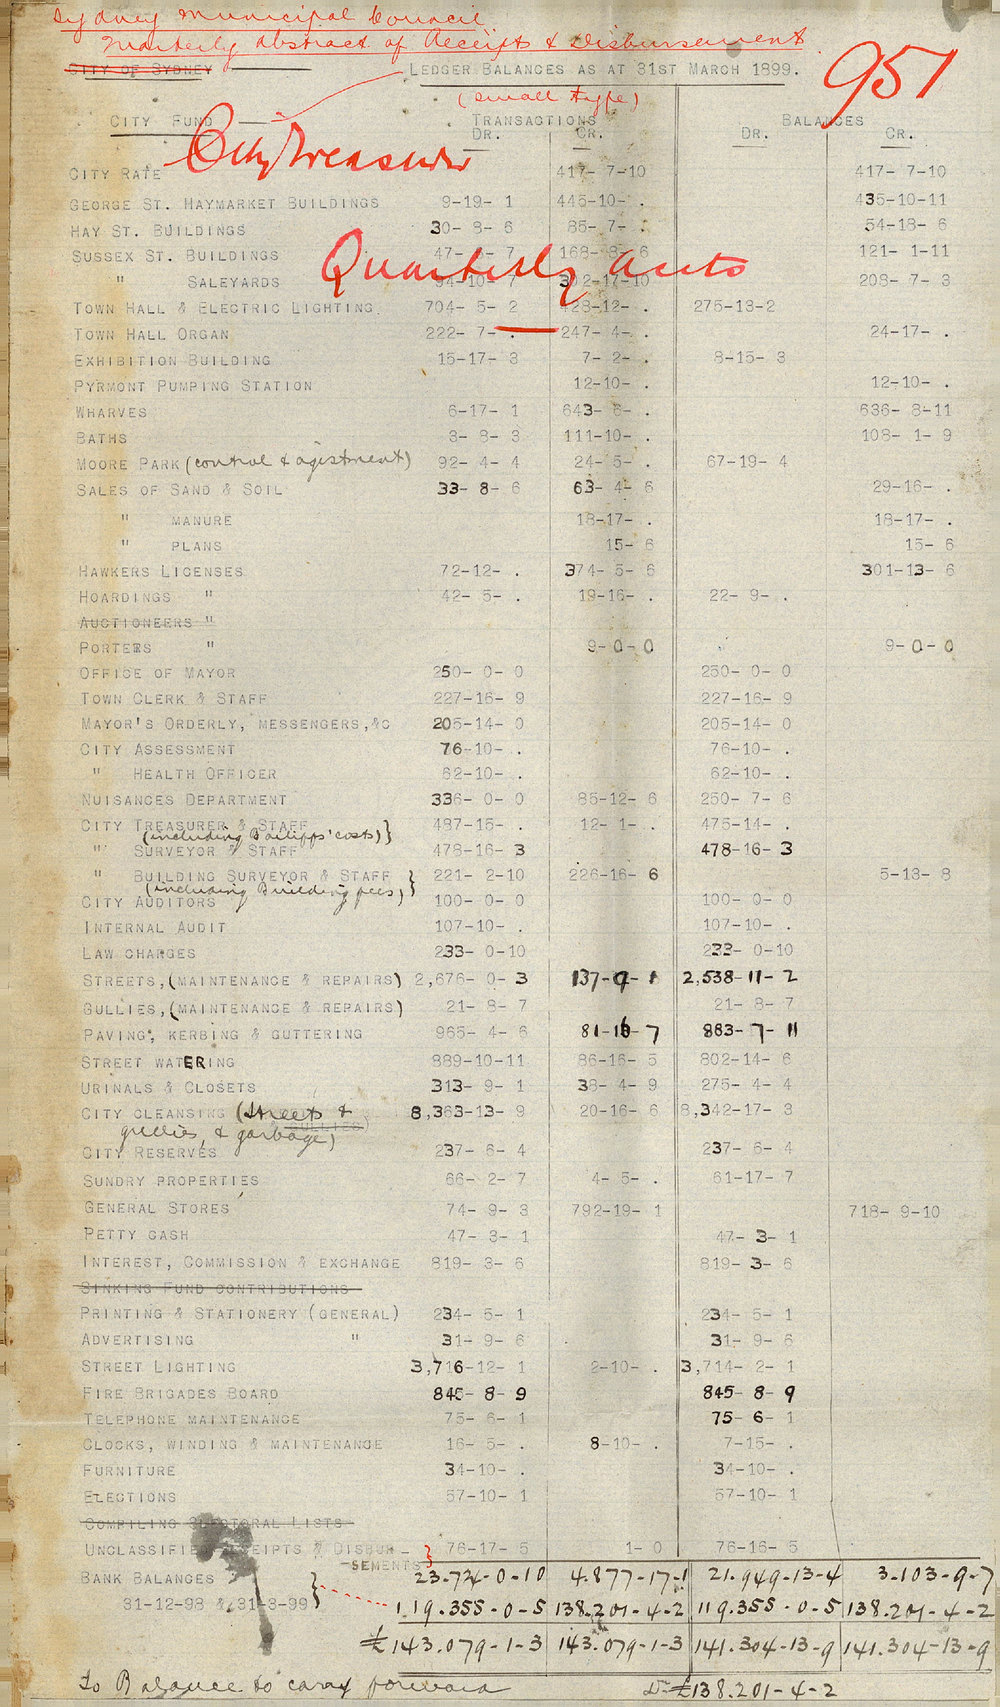 Sydney Municipal Council
Quarterly Abstract of Receipts & Disbursement
CITY OF SYDNEY LEDGER BALANCES AS AT 31ST MARCH 1899.
951
(small type)
CITY FUND TRANSACTIONS BALANCES
DR. CR. DR. CR.
City Treasurer
CITY RATE 417- 7-10 417- 7-10
GEORGE ST. HAYMARKET BUILDINGS 9-19- 1 445-10- . 435-10-11
HAY ST. BUILDINGS 30- 8- 6 85- 7- . 54-18- 6
SUSSEX ST. BUILDINGS 47- 7 168- 8- 6 121- 1-11
Quarterly accts
" SALEYARDS 94-10- 7 302-17-10 208- 7- 3
TOWN HALL & ELECTRIC LIGHTING 704- 5- 2 428-12- . 275-13-2
TOWN HALL ORGAN 222- 7- . 247- 4- . 24-17- .
EXHIBITION BUILDING 15-17- 3 7- 2- . 8-15- 3
PYRMONT PUMPING STATION 12-10- . 12-10- .
WHARVES 6-17- 1 643- 6- . 636- 8-11
BATHS 3- 8- 3 111-10- . 108- 1- 9
MOORE PARK (control & agistment) 92- 4- 4 24- 5- . 67-19- 4
SALES OF SAND & SOIL 33- 8- 6 63- 4- 6 29-16- .
" MANURE 18-17- . 18-17- .
" PLANS 15- 6 15- 6
HAWKERS LICENSES 72-12- . 374- 5- 6 301-13- 6
HOARDINGS " 42- 5- . 19-16- . 22- 9- .
AUCTIONEERS "
PORTERS " 9-0-0 9-0-0
OFFICE OF MAYOR 250- 0- 0 250- 0- 0
TOWN CLERK & STAFF 227-16- 9 227-16- 9
MAYOR'S ORDERLY, MESSENGERS,&C 205-14- 0 205-14- 0
CITY ASSESSMENT 76-10- . 76-10- .
" HEALTH OFFICER 62-10- . 62-10- .
NUISANCES DEPARTMENT 336- 0- 0 85-12- 6 250- 7- 6
CITY TREASURER & STAFF 487-15- . 12- 1- . 475-14- .
(including Bailiffs' costs)}
" SURVEYOR & STAFF 478-16- 3 478-16- 3
" BUILDING SURVEYOR & STAFF 221- 2-10 226-16- 6 5-13- 8
(including Building fees,)}
CITY AUDITORS 100- 0- 0 100- 0- 0
INTERNAL AUDIT 107-10- . 107-10- .
LAW CHARGES 233- 0-10 233- 0-10
STREETS,(MAINTENANCE & REPAIRS) 2,676- 0- 3 137-9-1 2,538-11-2
GULLIES,(MAINTENANCE & REPAIRS) 21- 8- 7 21- 8- 7
PAVING, KERBING & GUTTERING 965- 4- 6 81-16-7 883-7-11
STREET WATERING 889-10-11 86-16- 5 802-14- 6
URINALS & CLOSETS 313- 9- 1 38- 4- 9 275- 4- 4
CITY CLEANSING (Streets & 8,363-13- 9 20-16- 6 8,342-17- 3
gullies, & garbage)
CITY RESERVES 237- 6- 4 237- 6- 4
SUNDRY PROPERTIES 66- 2- 7 4- 5- . 61-17- 7
GENERAL STORES 74- 9- 3 792-19- 1 718- 9-10
PETTY CASH 47- 3- 1 47- 3- 1
INTEREST, COMMISSION & EXCHANGE 819- 3- 6 819- 3- 6
SINKING FUND CONTRIBUTIONS
PRINTING & STATIONERY (GENERAL) 234- 5- 1 234- 5- 1
ADVERTISING " 31- 9- 6 31- 9- 6
STREET LIGHTING 3,716-12- 1 2-10- . 3,714- 2- 1
FIRE BRIGADES BOARD 845- 8- 9 845- 8- 9
TELEPHONE MAINTENANCE 75- 6- 1 75- 6- 1
CLOCKS, WINDING & MAINTENANCE 16- 5- . 8-10- . 7-15- .
FURNITURE 34-10- . 34-10- .
ELECTIONS 57-10- 1 57-10- 1
COMPILING ELECTORAL LISTS
UNCLASSIFIED RECEIPTS & DISBUR- 76-17- 5 1- 0 76-16- 5
-SEMENTS}
23.724-0-10 4.877-17-1 21.949-13-4 3-103-9-7
BANK BALANCES
31-12-98 & 31-3-99} 119.355-0-5 138.201-4-2 119.355-0-5 138.201-4-2
£143.079-1-3 143.079-1-3 141.304-13-9 141.304-13-9
To Balance to carry forward Dr £138.201-4-2